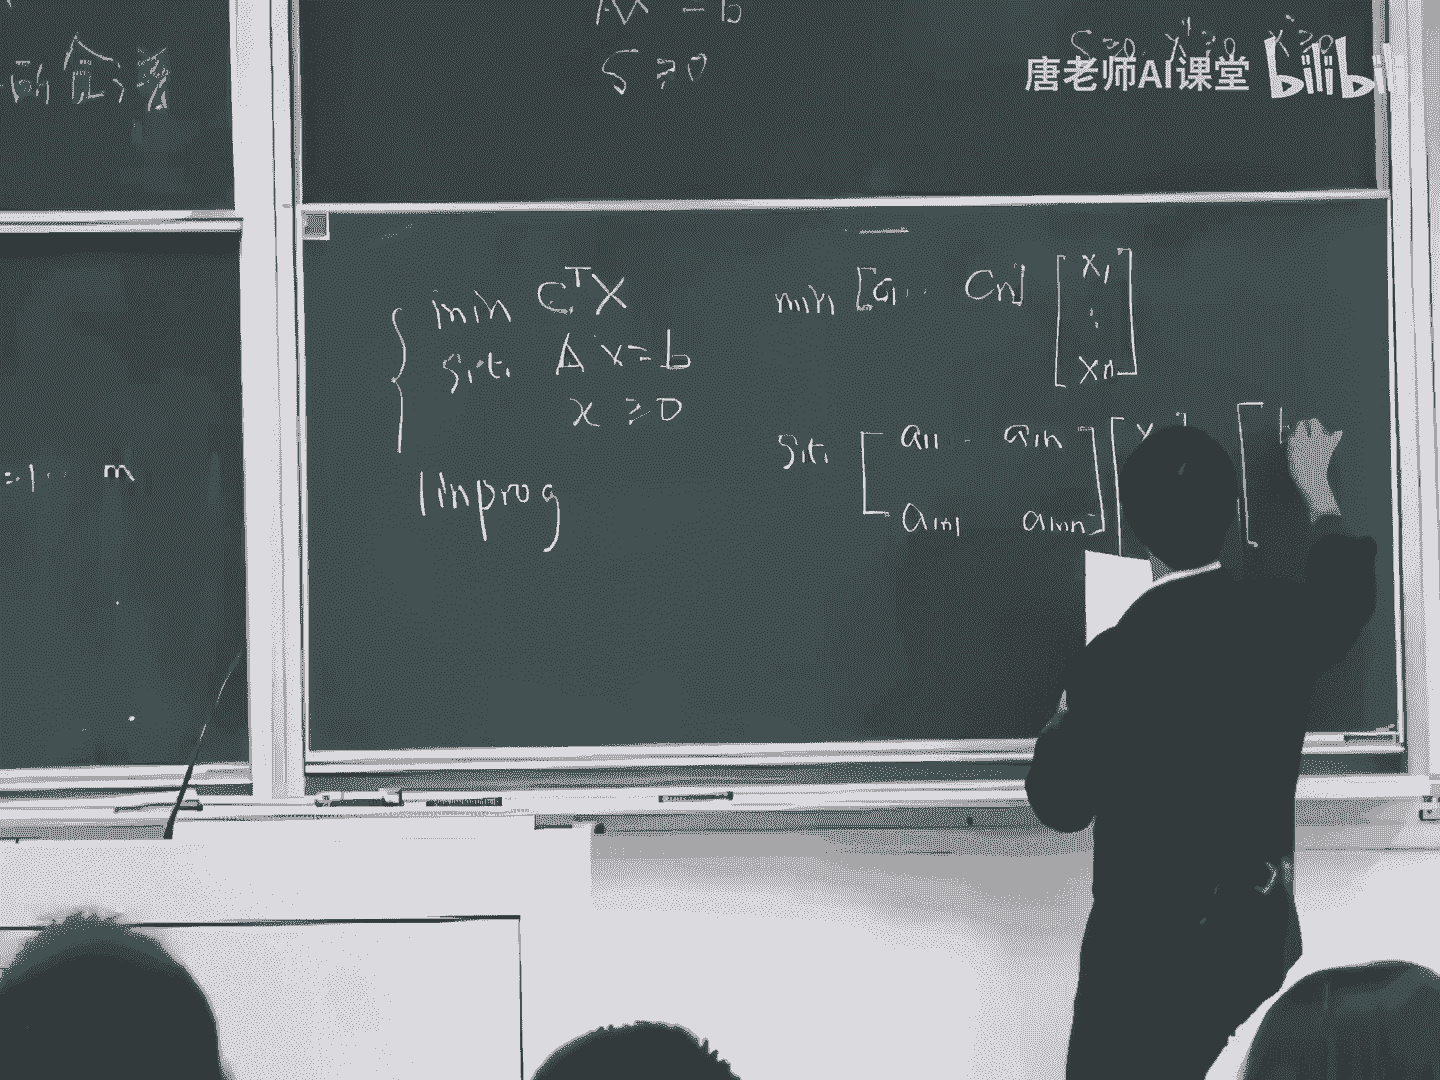 = b
S ≥0
S ≥0 x ≥0 x ≥0
唐老师AI课堂 bilibili
min C^T X
s.t. A x = b
x ≥ 0
linprog
=1 ·· m
min [a₁ ·· Cn] [x₁ : xn]
s.t. [a₁₁ ·· a₁n
am₁ amn] [x